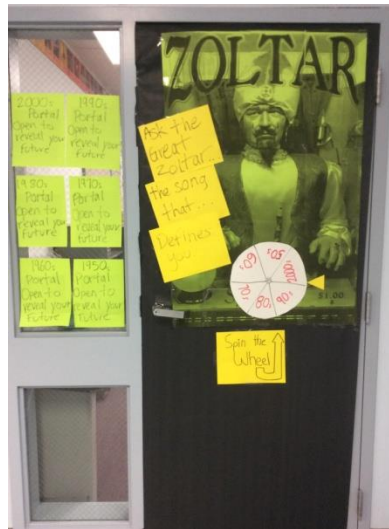 ZOLTAR
2000s
Portal
Open to
reveal your
future
1990s
Portal
Open to
reveal your
future
1980s
Portal
Open to
reveal your
future
1970s
Portal
Open to
reveal your
future
1960s
Portal
Open to
reveal your
Future
1950s
Portal
Open to
reveal your
Future
Ask the
Great
Zoltar...
the song
that...
Defines
you
60s
50s
2000s
90s
80s
70s
$1.00
Spin the
Wheel